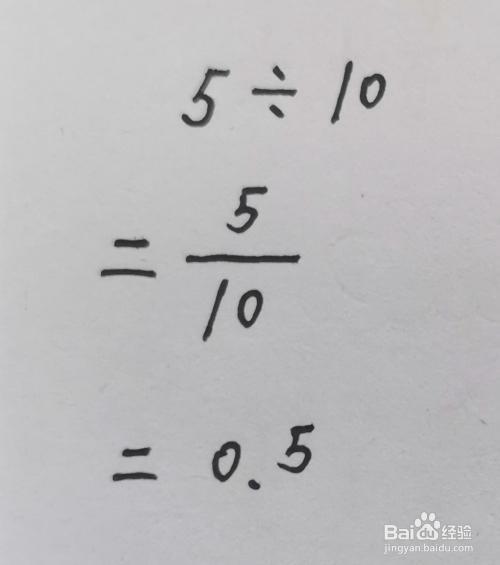 5 ÷ 10
= 5/10
= 0.5
Baidu 经验
jingyan.baidu.com